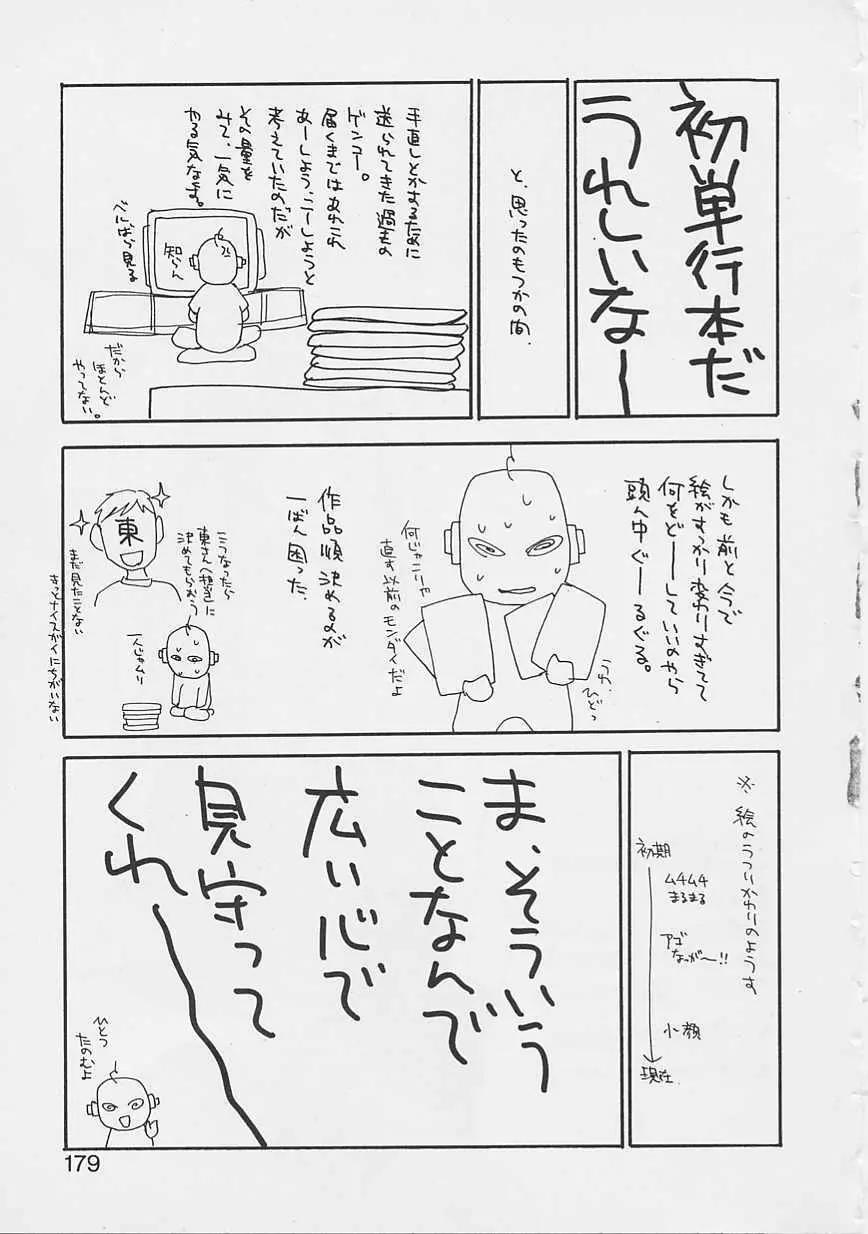 初単行本だ
うれしいなー
と、思ったのもつかの間、
手直しとかするために
送られてきた過去の
ゲンコー。
届くまではあれこれ
あーしよう、こーしようと
考えていたのだが
その量を
みて、一気に
やる気なます。
知らん
べにばら見る
だから
ほとんど
やってない。
しかも前と今で
絵がすっかり変わりすぎてて
何をど——していいのやら
頭ん中ぐ——るぐる。
うわ、
ひどっ
何じゃこりゃ
直す以前のモンダイだよ
作品順決めるのが
一ばん困った。
こうなったら
東さん(担当)に
決めてもらおう
一人じゃムリ
東
まだ見たことない
きっとナイスガイにちがいない
※絵のうつりかわりのようす
初期
ムチムチ
まるまる
アゴ
なっが〜!!
小顔
現在
ま、そういう
ことなんで
広い心で
見守って
くれ〜
ひとつ
たのむよ
179